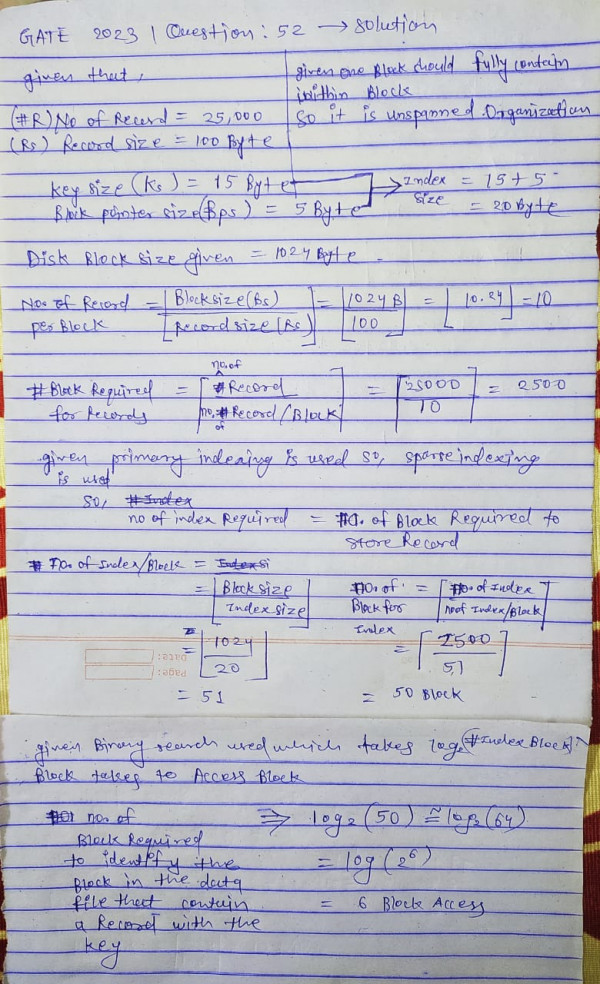 GATE 2023 | Question: 52 → solution
given that,
(#R) No of Record = 25,000
(Rs) Record size = 100 Byte
given one Block should fully contain
within Block
So it is unspanned Organization
key size (Ks) = 15 Byte
Block pointer size (Bps) = 5 Byte
Index size = 15 + 5
= 20 Byte
Disk Block size given = 1024 Byte.
No. of Record per Block = ⌊Block size (Bs) / Record size (Rs)⌋ = ⌊1024 B / 100⌋ = ⌊10.24⌋ = 10
# Block Required for Records = ⌈no. of Record / no. of Record/Block⌉ = ⌈25000 / 10⌉ = 2500
given primary indexing is used so, sparse indexing
is used
so, #Index
no of index Required = No. of Block Required to
store Record
# no. of Index/Block = Indexsi
= ⌊Block size / Index size⌋
= ⌊1024 / 20⌋
= 51
No. of Block for Index = ⌈no. of Index / no of Index/Block⌉
= ⌈2500 / 51⌉
= 50 Block
Date:
Page:
given Binary search used which takes log₂(#Index Block)
Block takes to Access Block
no. of
Block Required
to identify the
Block in the data
file that contain
a Record with the
key
⇒ log₂(50) ≅ log₂(64)
= log(2⁶)
= 6 Block Access